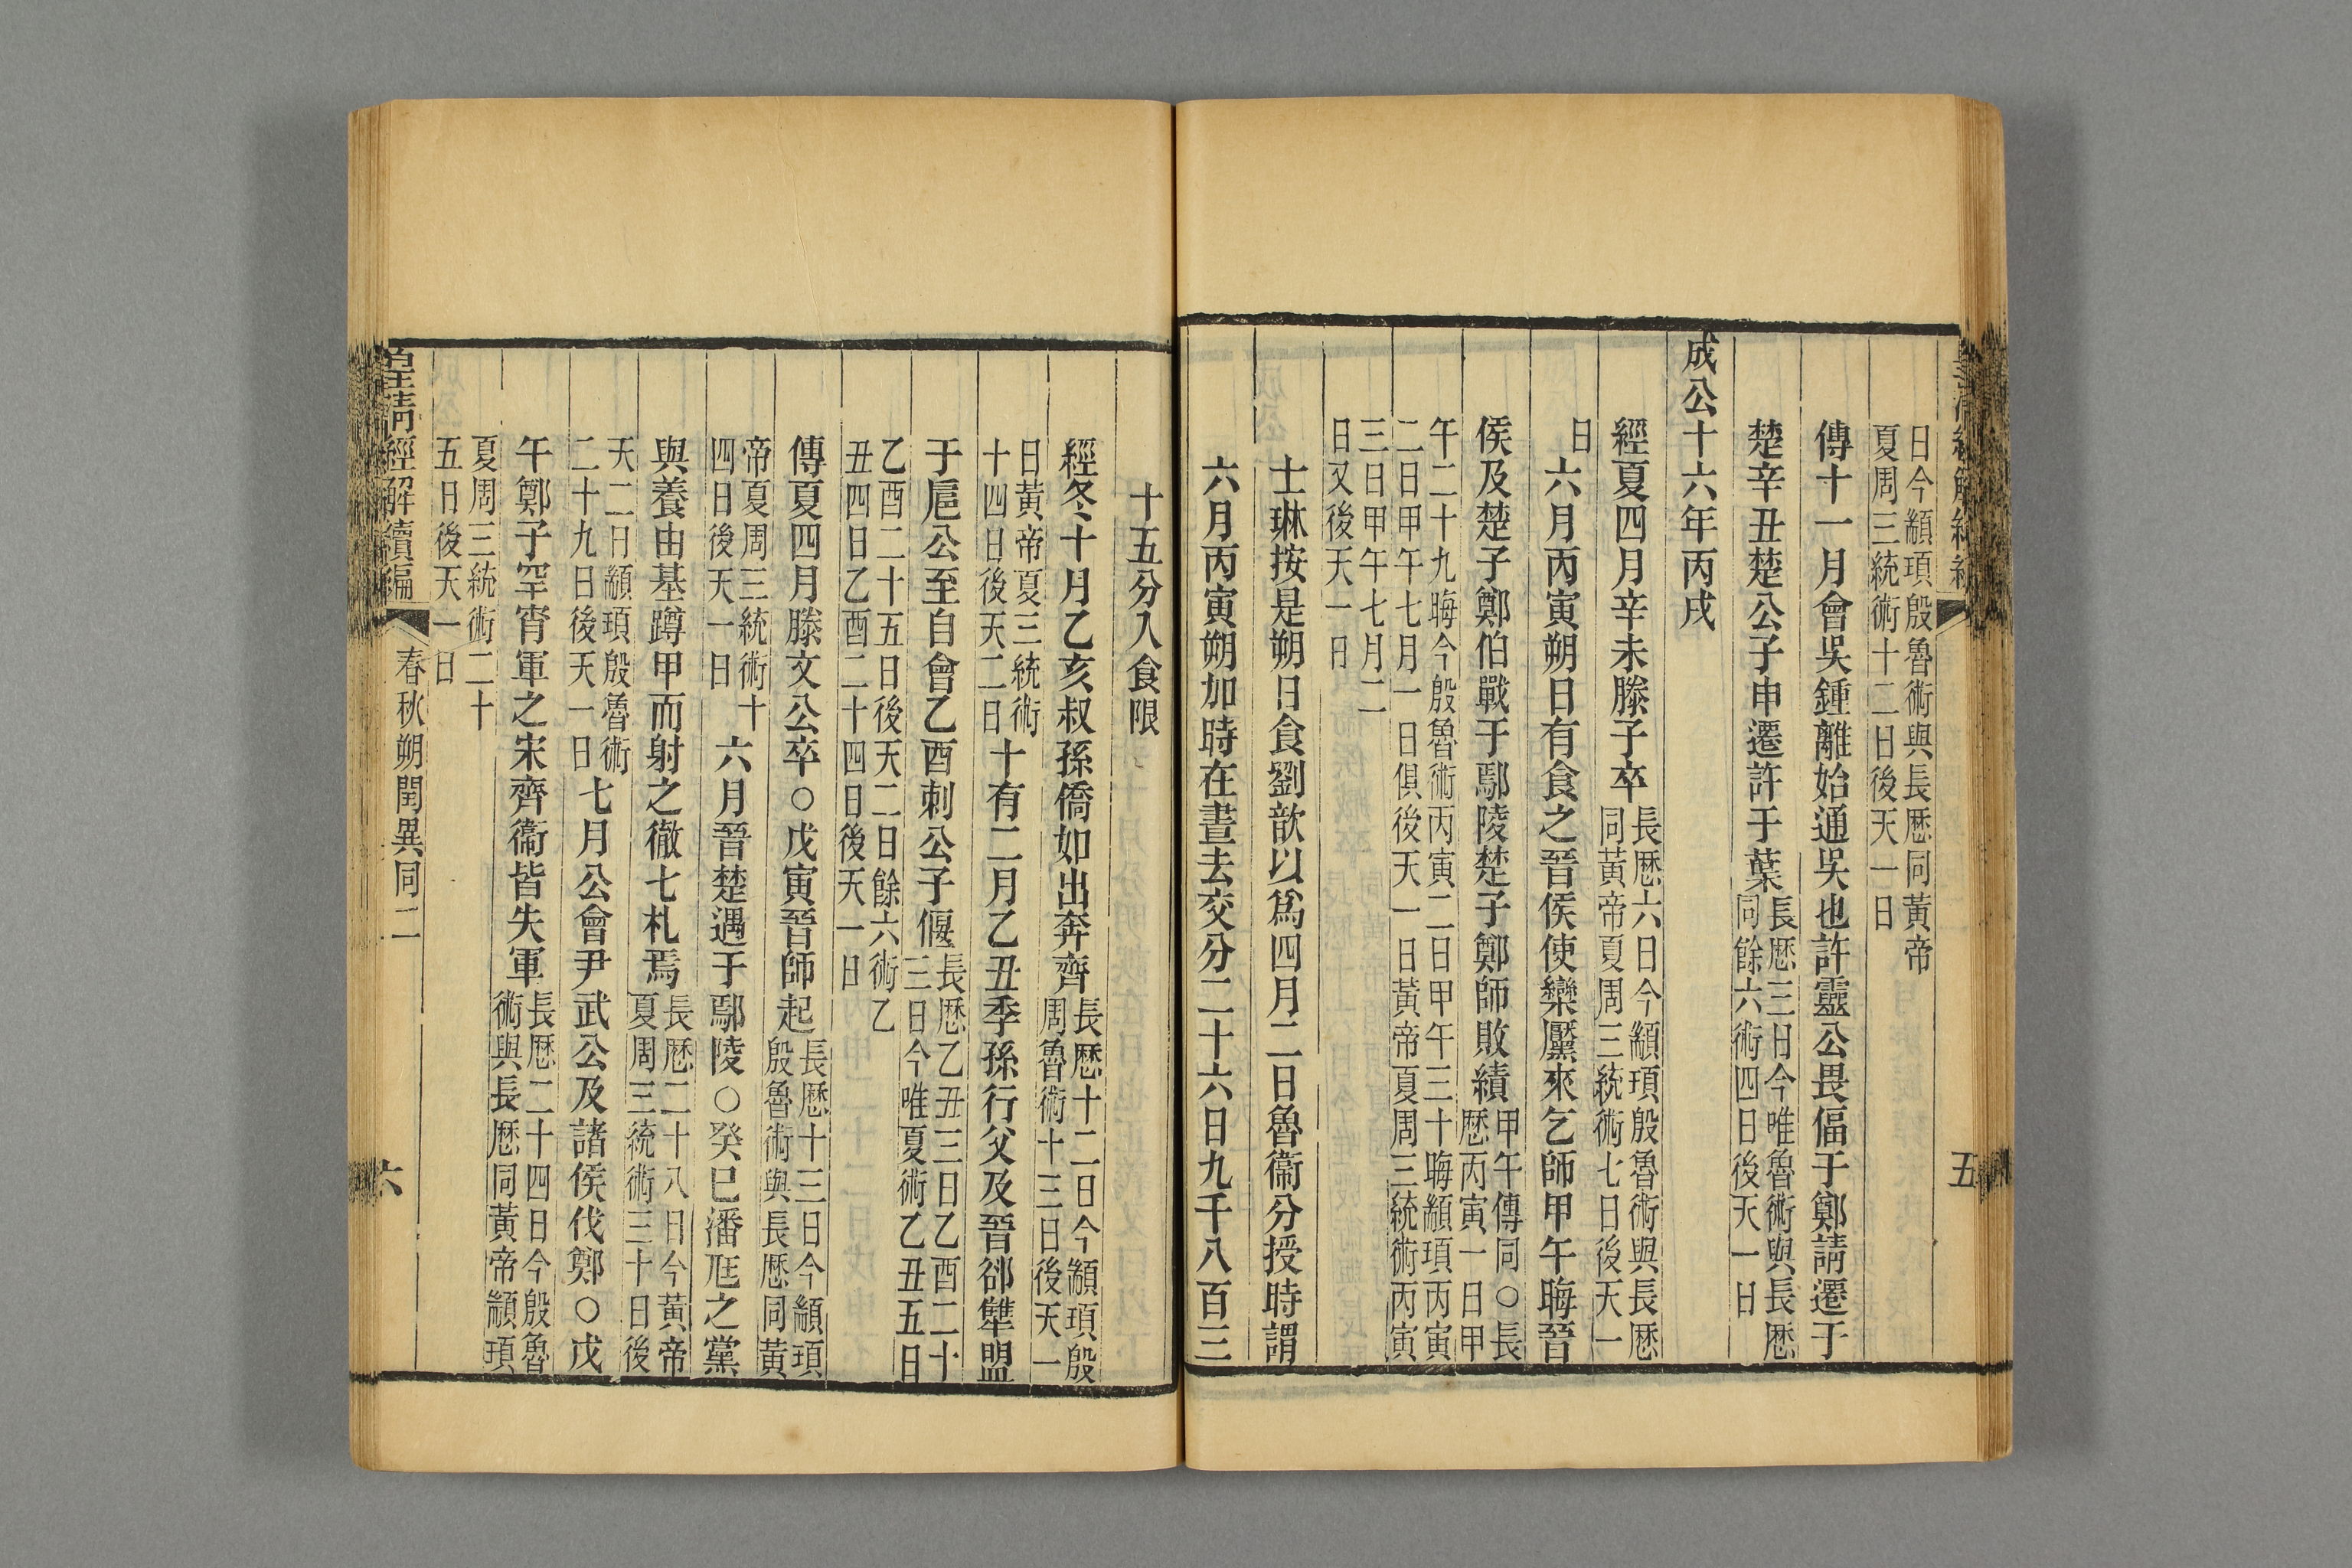 日今顓頊殷魯術與長厯同黃帝
夏周三統術十二日後天一日
傳十一月會吳鍾離始通吳也許靈公畏偪于鄭請遷于
楚辛丑楚公子申遷許于葉長厯三日今唯魯術與長厯
同餘六術四日後天一日
成公十六年丙戌
經夏四月辛未滕子卒長厯六日今顓頊殷魯術與長厯
同黃帝夏周三統術七日後天一
日六月丙寅朔日有食之晉侯使欒黶來乞師甲午晦晉
侯及楚子鄭伯戰于鄢陵楚子鄭師敗績甲午傳同○長
厯丙寅一日甲
午二十九晦今殷魯術丙寅二日甲午三十晦顓頊丙寅
二日甲午七月一日俱後天一日黃帝夏周三統術丙寅
三日甲午七月二
日又後天一日
士琳按是朔日食劉歆以爲四月二日魯衞分授時謂
六月丙寅朔加時在晝去交分二十六日九千八百三
五
十五分入食限
經冬十月乙亥叔孫僑如出奔齊長厯十二日今顓頊殷
周魯術十三日後天一
日黃帝夏三統術
十四日後天二日十有二月乙丑季孫行父及晉郤犨盟
于扈公至自會乙酉刺公子偃長厯乙丑三日乙酉二十
三日今唯夏術乙丑五日
乙酉二十五日後天二日餘六術乙
丑四日乙酉二十四日後天一日
傳夏四月滕文公卒○戊寅晉師起長厯十三日今顓頊
殷魯術與長厯同黃
帝夏周三統術十
四日後天一日六月晉楚遇于鄢陵○癸巳潘尫之黨
與養由基蹲甲而射之徹七札焉長厯二十八日今黃帝
夏周三統術三十日後
天二日顓頊殷魯術
二十九日後天一日七月公會尹武公及諸侯伐鄭○戊
午鄭子罕宵軍之宋齊衞皆失軍長厯二十四日今殷魯
術與長厯同黃帝顓頊
夏周三統術二十
五日後天一日
皇清經解續編
春秋朔閏異同二
六